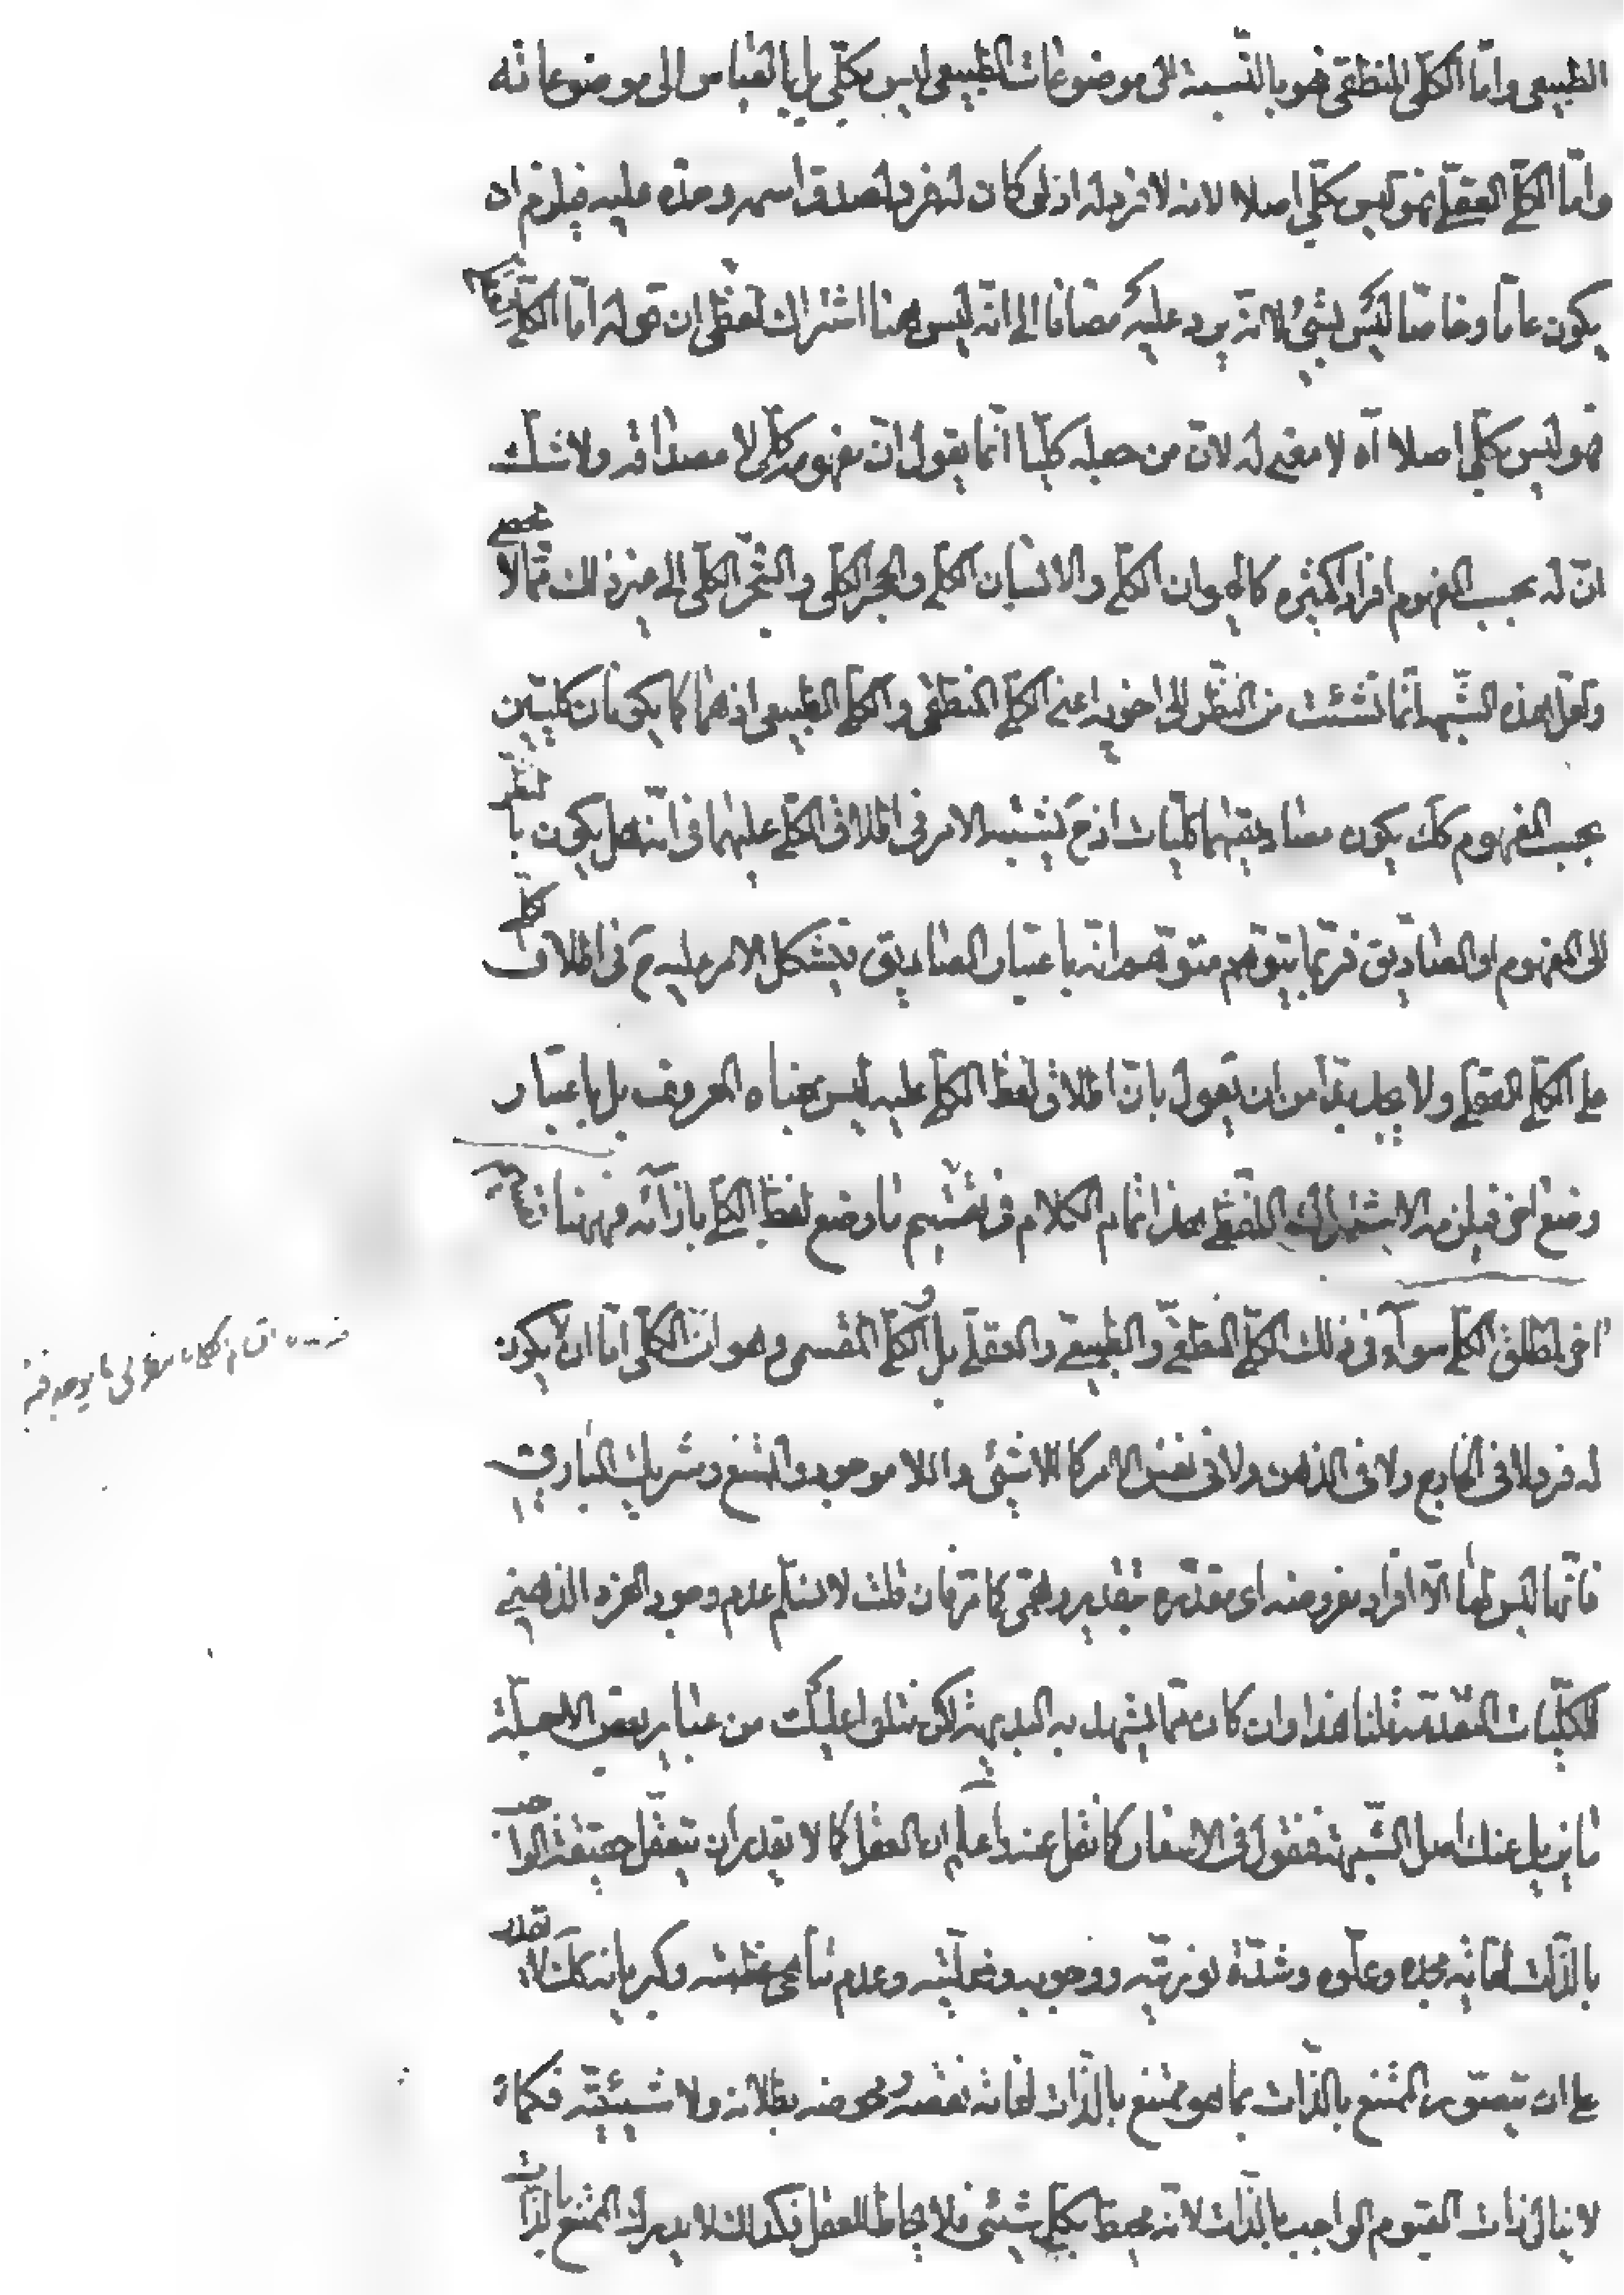 الطبيعى وامّا الكلّى المنطقى فهو بالنّسبة الى موضوعات الطبيعى ليس بكلّى بل بالقياس الى موضوعاته
وامّا الكلّى العقلّى فهو ليس بكلّى اصلا لانه لا فرد له اذ لو كان له فرد لصدق اسمه وحدّه عليه فيلزم ان
يكون عامّا وخاصّا ليس بشئ لانّه يرد عليه مضافا الى انّه ليس هنا اشتراك لفظى ان قوله امّا الكلّى العقلى
فهو ليس بكلّى اصلا آه لا معنى له لانّ من جعله كليّا انّما يقول انّ مفهومه كلّى لا مصداقه ولا شكّ
انّ له بحسب المفهوم افراد كثيره كالحيوان الكلّى والانسان الكلّى والحجر الكلّى والشّجر الكلّى الى غير ذلك ممّا لا يحصى
ولعلّ هذه الشّبهة انّما نشئت من النّظر الى اخويه اعنى الكلّى المنطقى والكلّى الطّبيعى اذ هما كما يكونان كليّتين
بحسب المفهوم كك يكون مصاديقهما كليّات اذ ح يشتبه الامر فى اطلاق الكلّى عليهما فى انّه هل يكون بالنّظر
الى المفهوم او المصاديق فربّما يتوهّم متوهّم انّه باعتبار المصاديق فيشكل الامر عليه ح فى اطلاق الكلّى
على الكلّى العقلى ولا يجد بدّا من ان يقول بانّ اطلاق لفظ الكلّى عليه ليس بمعناه المعروف بل باعتبار
وضع اخر فيلزمه الاشتراك اللّفظى هذا تمام الكلام فى تقسيم ما وضع لفظ الكلّى بازائه وههنا تقسيم
اخر لمطلق الكلّى سوآء فى ذلك الكلّى المنطقى والطّبيعى والعقلى بل الكلّى المقسمى وهو انّ الكلّى امّا ان لا يكون
له فرد لا فى الخارج ولا فى الذهن ولا فى نفس الامر كاللاشئ واللاموجود والممتنع وشريك البارى
فانّها ليس لها الّا افراد مفروضه اى مقدّره بتقدير وهمى كما مرّ فان قلت لا نسلّم عدم وجود الفرد الذهنى
للكليّات المتقدّمة قلنا هذا وان كان ممّا يشهد به البديهة لكن نتلو اعليك من عباير بعض الاجلّة
ما يزيل عنك اصل الشّبهة فنقول فى الاسفار كما نقل عنه اعلم ان العقل كما لا يقدر ان يتعقّل حقيقة الواجب
بالذّات لغاية مجده وعلّوه وشدّة نوريّته ووجوبه وفعليّته وعدم تناهى عظمته وكبريائه كك لا يقدر
على ان يتصوّر الممتنع بالذّات بما هو ممتنع بالذّات لغاية نقصه ومحوضه بطلانه ولا شيئيّته فكما
لا ينال ذات القيّوم الواجب بالذّات لانّه محيط بكلّ شيئى فلا يحاط للعقل فكذلك لا يدرك الممتنع بالذّات